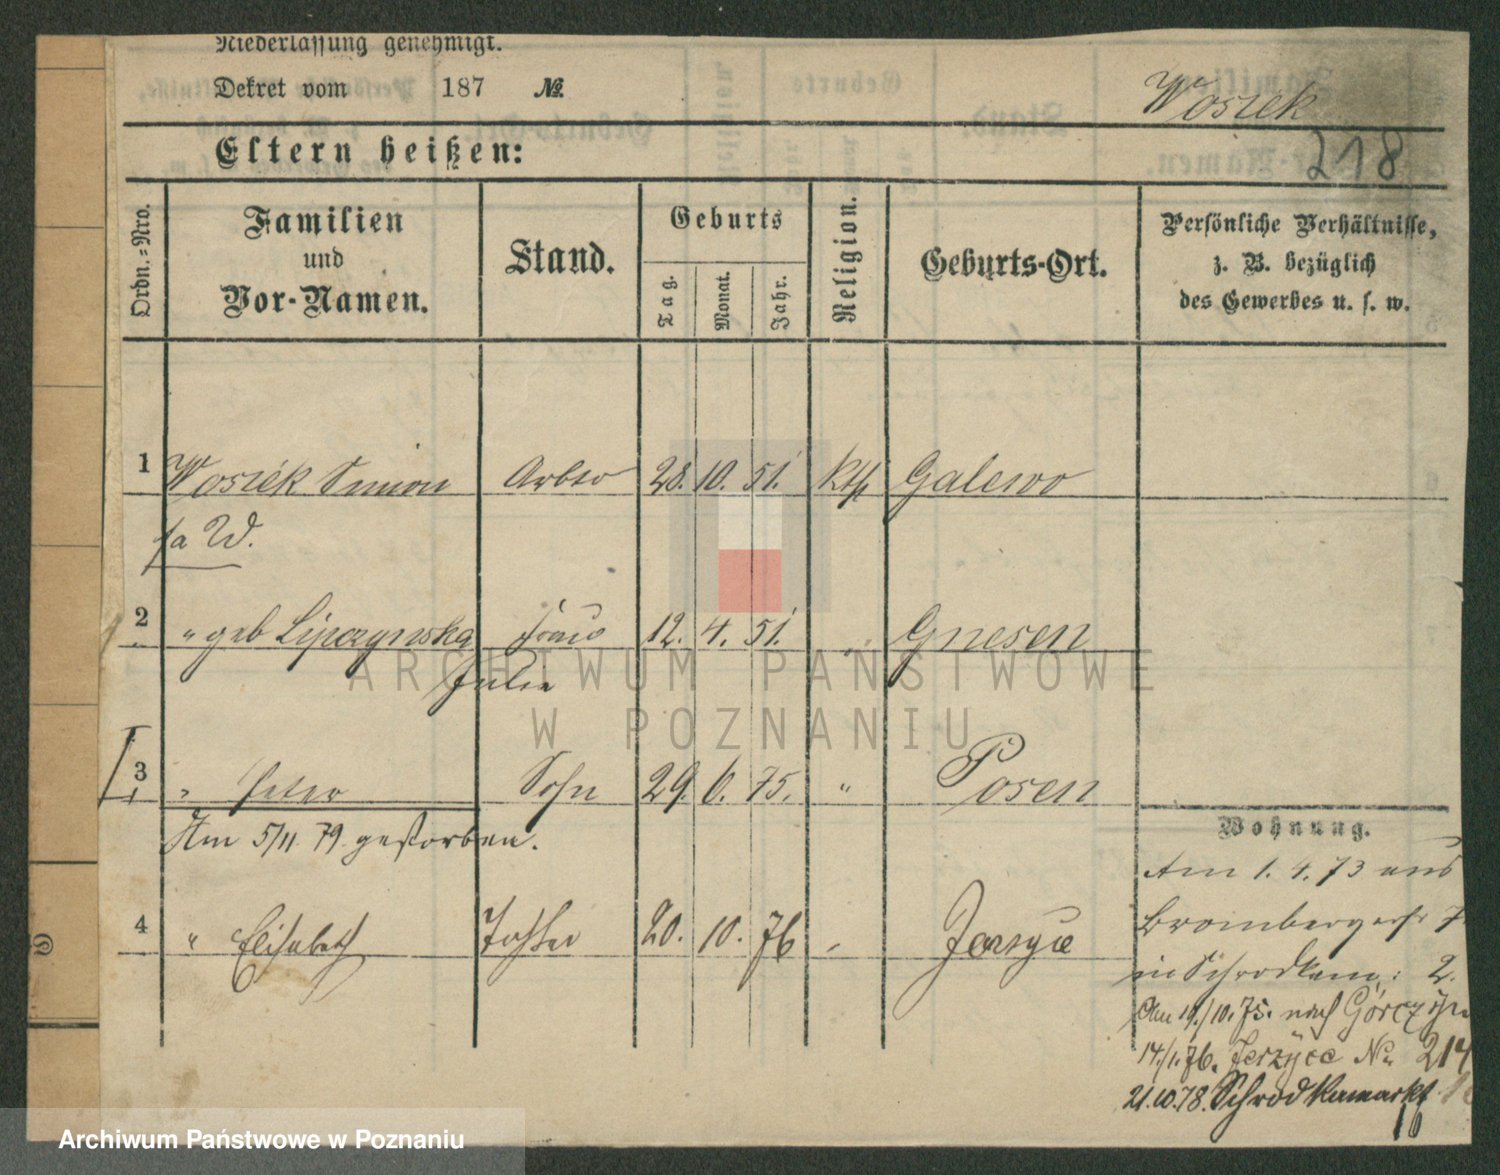 Niederlassung genehmigt.
Dekret vom 187 №
Wosiek
218
Eltern heißen:
Ordn.-Nro.
Familien und Vor-Namen.
Stand.
Geburts
Tag. Monat. Jahr.
Religion.
Geburts-Ort.
Persönliche Verhältnisse,
z. B. bezüglich
des Gewerbes u. s. w.
1 Wosiek Simon Arbtr 28. 10. 51. Kth Galewo
2 " geb Lipczynska Frau 12. 4. 51. " Gnesen
Julia
3 " Peter Sohn 29. 6. 75. " Posen
Am 5/11 79. gestorben.
4 " Elisabeth Tochter 20. 10. 76 " Jerzyce
Wohnung.
Am 1. 4. 73 aus
Brombergerstr 7
in Schrodkam: 2.
Am 19./10. 75. nach Górczyn
14./1. 76. Jerzyce No 214
21.10.78. Schrodkamarkt
16
ARCHIWUM PAŃSTWOWE
W POZNANIU
Archiwum Państwowe w Poznaniu